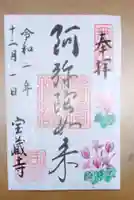 奉拝
阿弥陀如来
令和一年
十二月一日
宝蔵寺